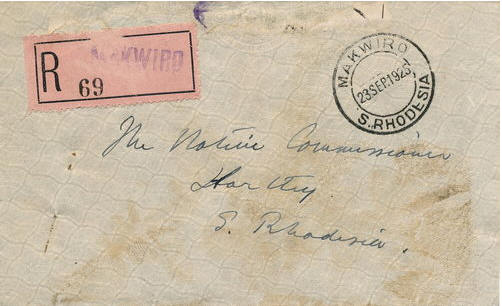 R
MAKWIRO
69
MAKWIRO
23 SEP.1925
S. RHODESIA
The Native Commissioner
Hartley.
S. Rhodesia.